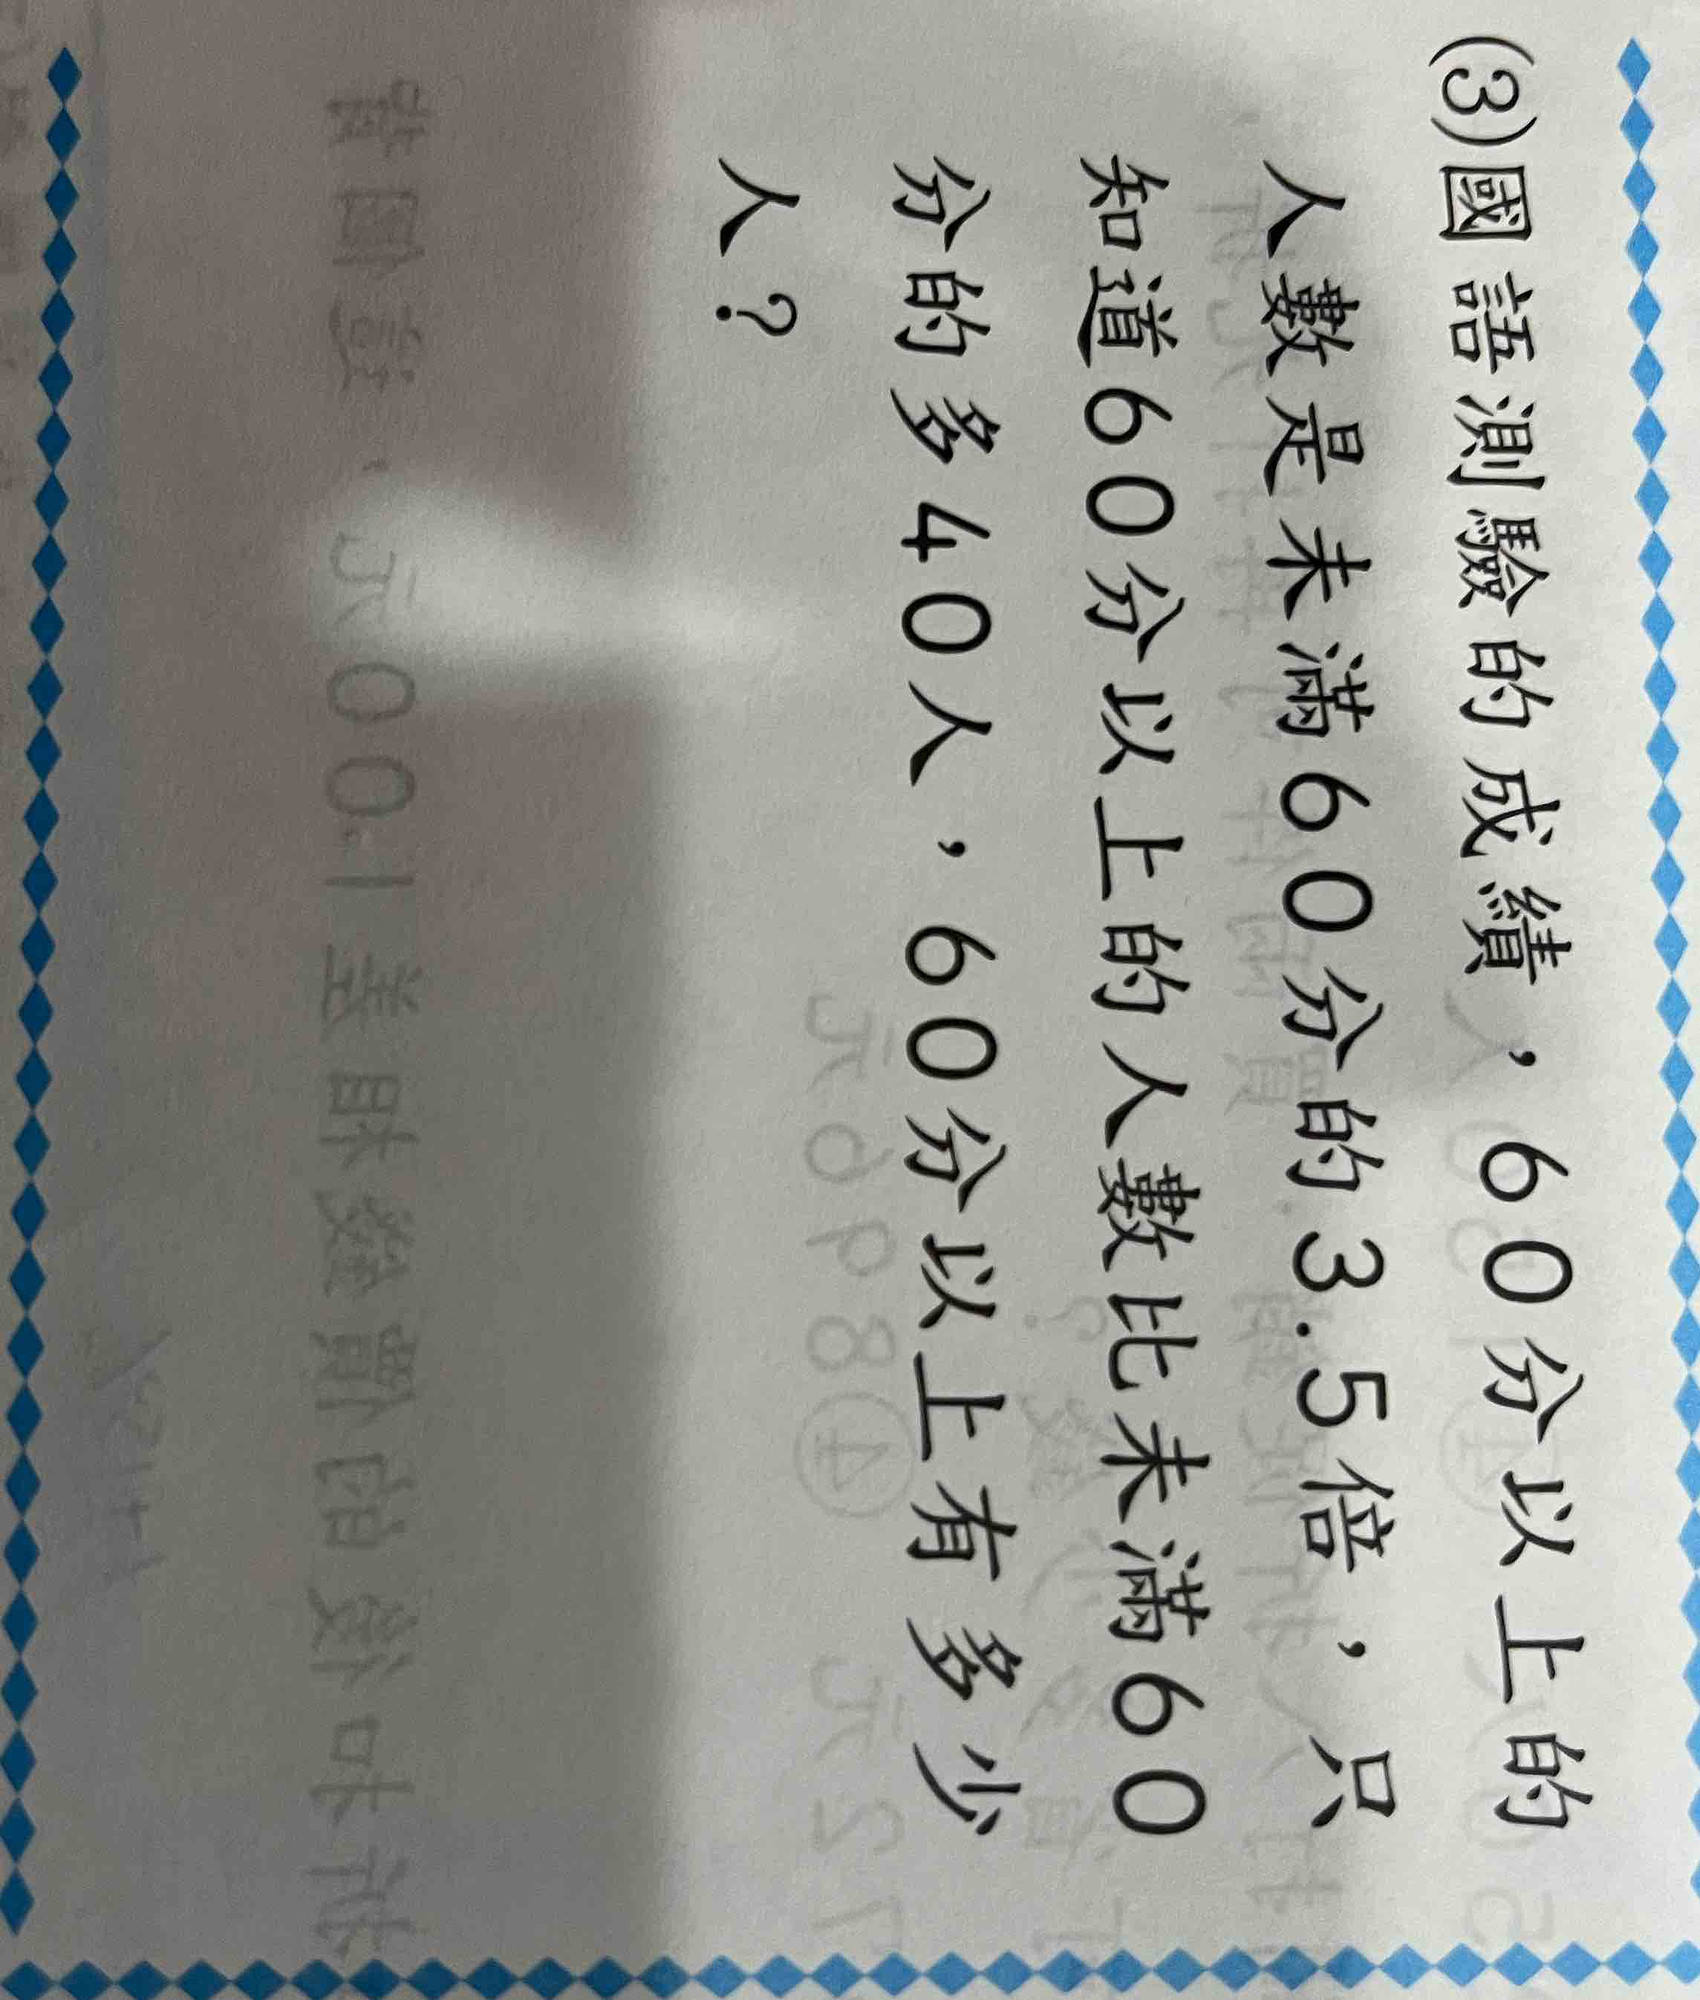 (3)國語測驗的成績，60分以上的
人數是未滿60分的3.5倍，只
知道60分以上的人數比未滿60
分的多40人，60分以上有多少
人？